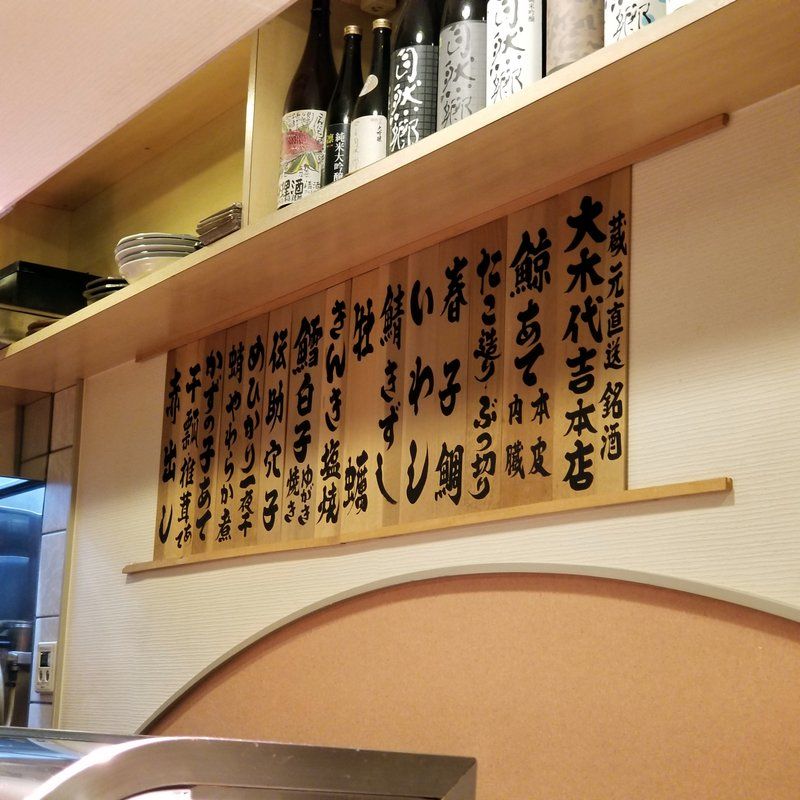 蔵元直送 銘酒
大木代吉本店
鯨あて 本皮 内臓
たこ造り ぶつ切り
春子鯛
いわし
鯖きずし
牡蠣
きんき塩焼
鱈白子 ゆがき 焼き
伝助穴子
めひかり一夜干
蛸やわらか煮
かずの子あて
干瓢・椎茸あて
赤出し
純米大吟醸
自然郷
自然郷
自然郷